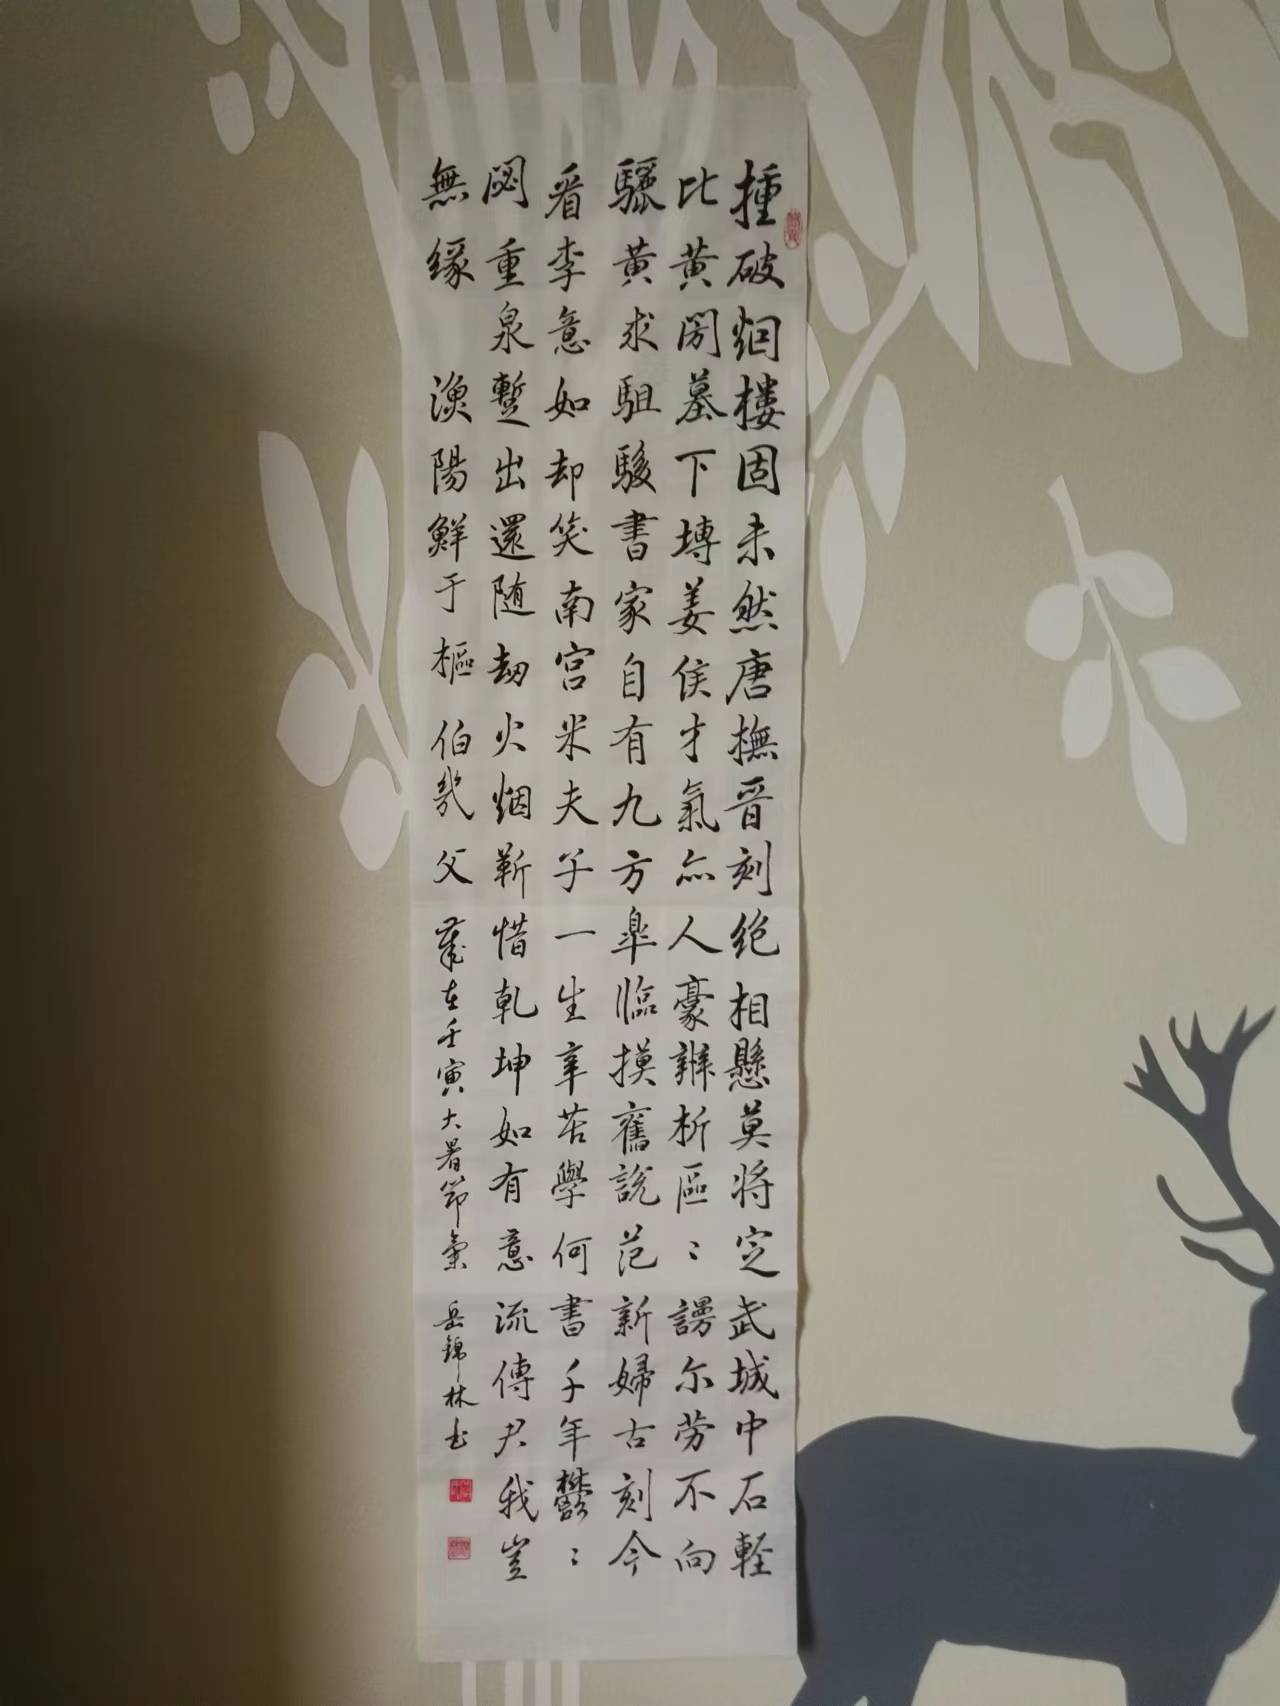 撞破烟樓固未然唐撫晋刻絶相懸莫將定武城中石軽
比黄閍墓下塼姜侯才氣亦人豪辨析區〻謾尔劳不向
驪黄求駔駿書家自有九方臯臨摸舊説范新婦古刻今
看李意如却笑南宫米夫子一生辛苦學何書千年欝〻
閟重泉蹔出還随劫火烟靳惜乾坤如有意流傳尹我豈
無緣 漁陽鮮于樞伯幾父 歲在壬寅大暑節氣 岳錦林书